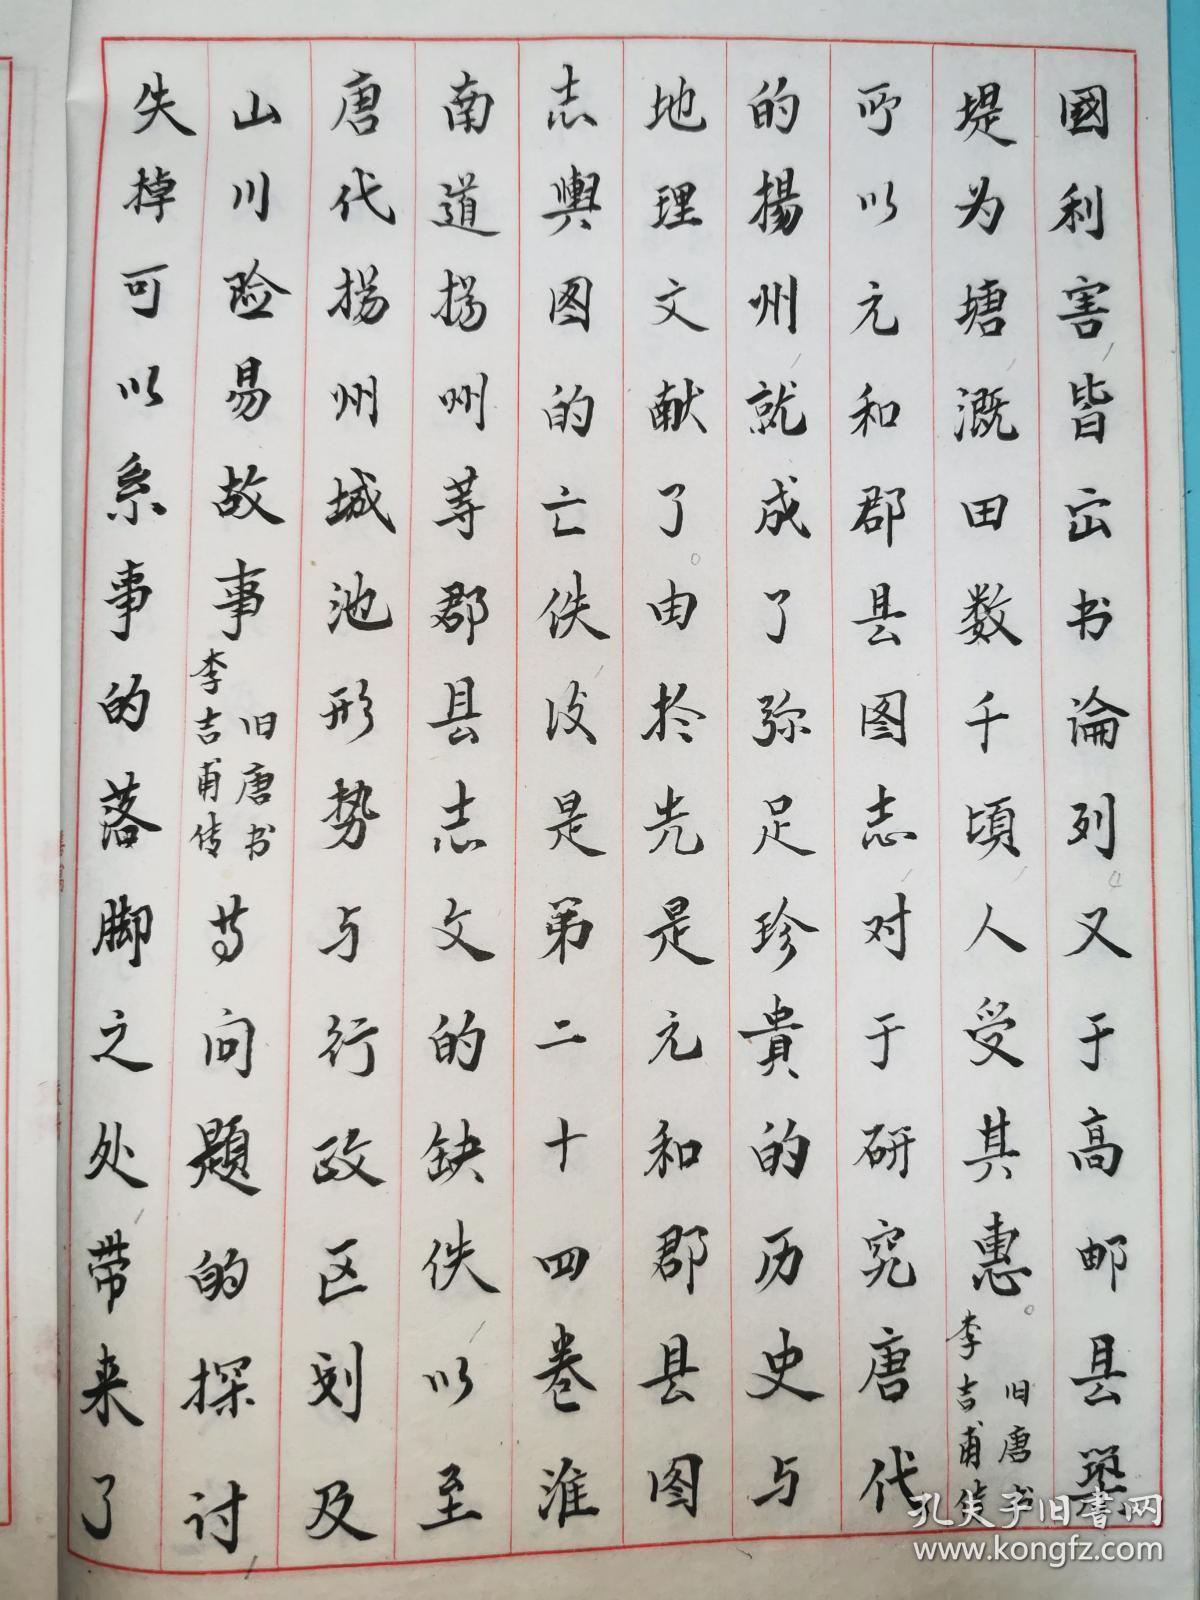 國利害，皆出书論列，又于高邮县築
堤为塘，溉田数千頃，人受其惠。旧唐书李吉甫传
所以元和郡县图志，对于研究唐代
的揚州，就成了弥足珍貴的历史与
地理文献了。由於先是元和郡县图
志輿图的亡佚，後是第二十四卷淮
南道揚州等郡县志文的缺佚，以至
唐代揚州城池形势与行政区划及
山川险易故事旧唐书李吉甫传等问题的探讨，
失掉可以系事的落脚之处，带来了
孔夫子旧书网
www.kongfz.com